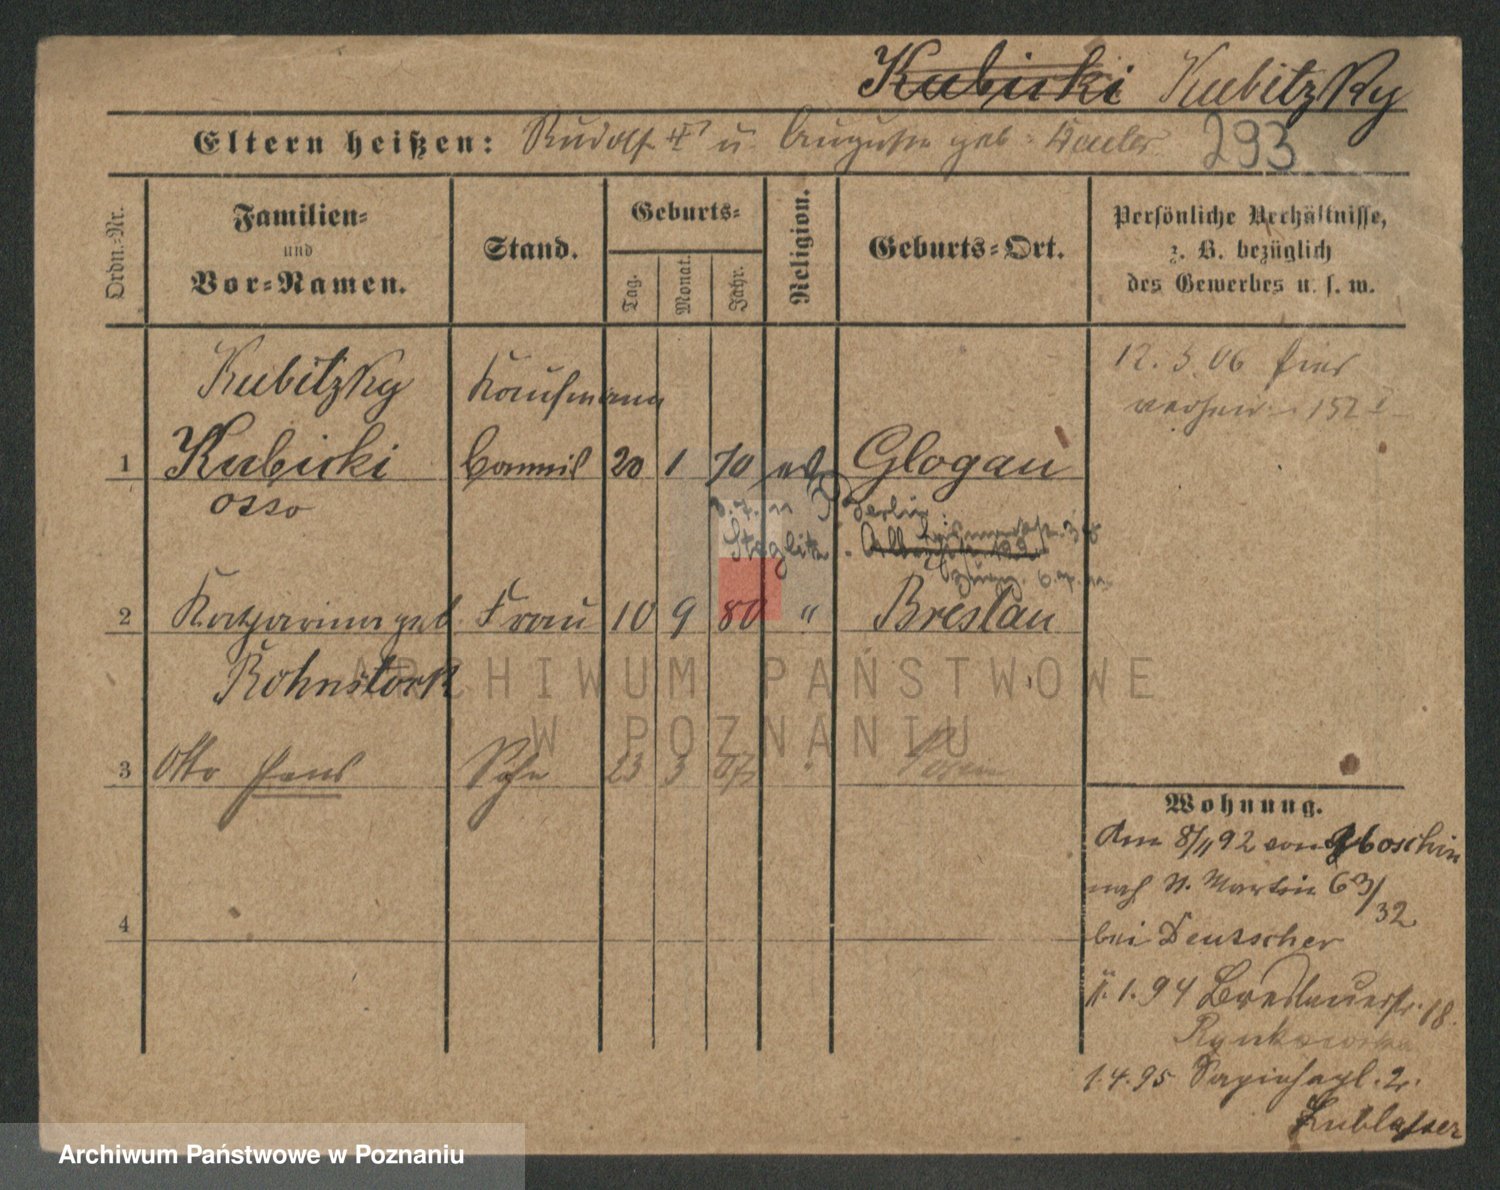 Kubicki Kubitzky
Eltern heißen: Rudolf u. Auguste geb.
293
Ordn.=Nr.
Familien=
und
Vor=Namen.
Stand.
Geburts=
Tag.
Monat.
Jahr.
Religion.
Geburts=Ort.
Persönliche Verhältnisse,
z. B. bezüglich
des Gewerbes u. s. w.
Kubitzky Kaufmann
12. 5. 06 hier
verheir. 152 I
1 Kubicki Commis 20 1 70 ev Glogau
Otto
Berlin
Steglitz
2 Katharina geb. Frau 10 9 80 " Breslau
Rohnstock
3 Otto Hans Sohn 23 3 07 " Posen
4
Wohnung.
Am 8/11 92 von
nach St. Martin 63/
32
bei Deutscher
1. 94 Breslauerstr. 18.
Rynkowska
1.4.95 Sapiehapl. 2.
ARCHIWUM PAŃSTWOWE
W POZNANIU
Archiwum Państwowe w Poznaniu